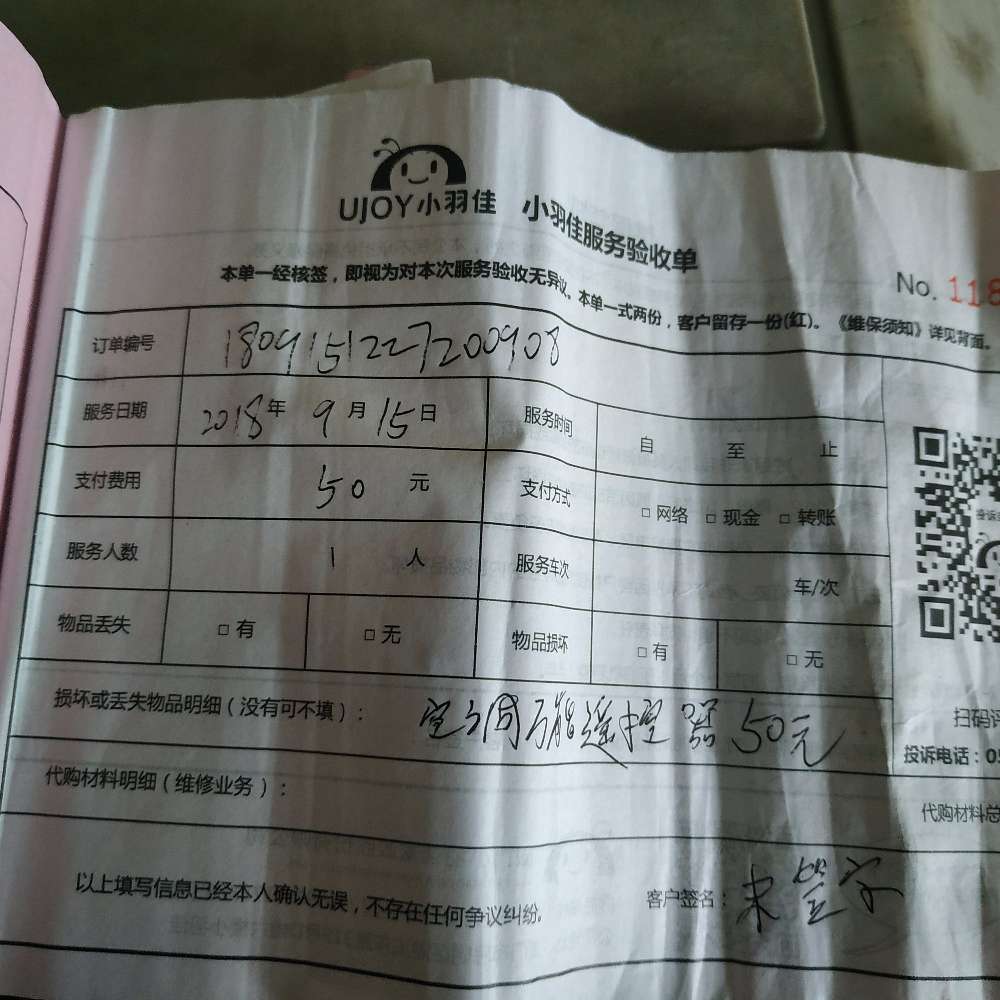 UJOY小羽佳 小羽佳服务验收单
本单一经核签，即视为对本次服务验收无异议。本单一式两份，客户留存一份(红)。《维保须知》详见背面。
No. 118
订单编号 1809151227200908
服务日期 2018年 9月 15日 服务时间 自 至 止
支付费用 50 元 支付方式 □ 网络 □ 现金 □ 转账
服务人数 1 人 服务车次 车/次
物品丢失 □ 有 □ 无 物品损坏 □ 有 □ 无
损坏或丢失物品明细（没有可不填）： 空调万能遥控器50元
扫码
投诉电话：0
代购材料明细（维修业务）：
代购材料总
以上填写信息已经本人确认无误，不存在任何争议纠纷。
客户签名： 未签字